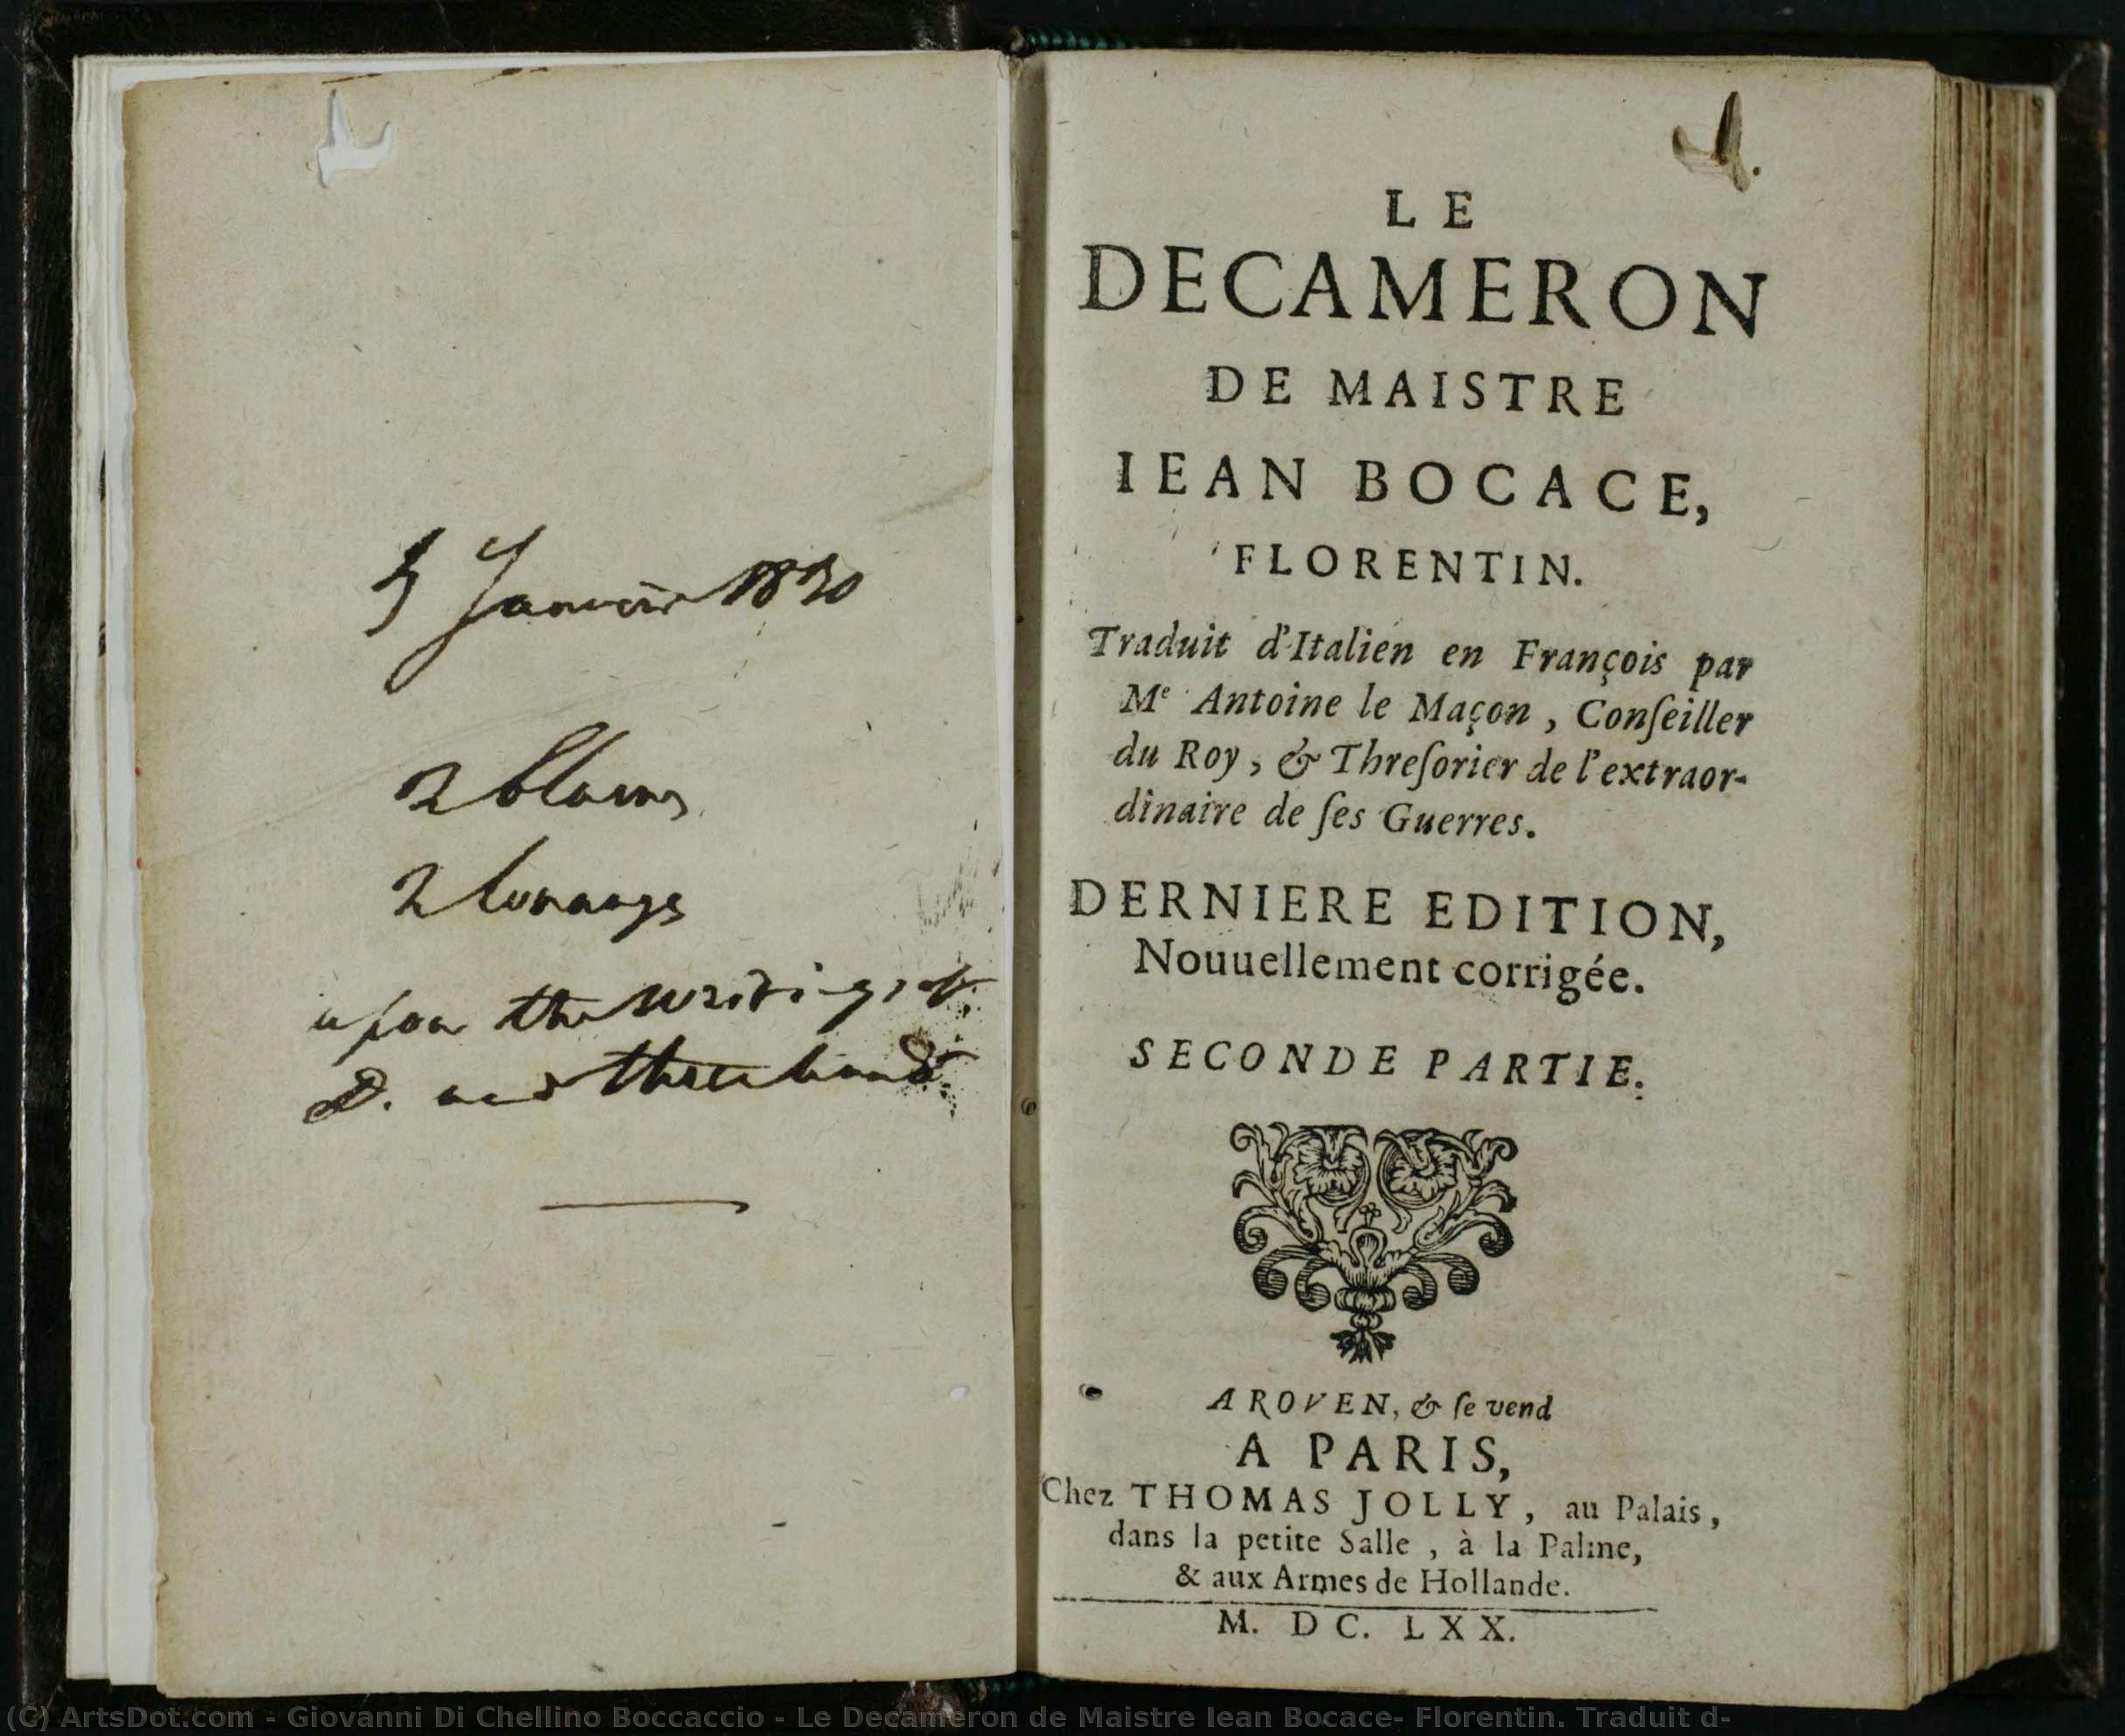 Janvier 1830
2
2
upon the writings of
D. and three hund
LE
DECAMERON
DE MAISTRE
IEAN BOCACE,
FLORENTIN.
Traduit d'Italien en François par
Me Antoine le Maçon , Conſeiller
du Roy , & Threſorier de l'extraor-
dinaire de ſes Guerres.
DERNIERE EDITION,
Nouuellement corrigée.
SECONDE PARTIE.
A ROVEN, & ſe vend
A PARIS,
Chez THOMAS JOLLY , au Palais ,
dans la petite Salle , à la Palme,
& aux Armes de Hollande.
M. DC. LXX.
(C) ArtsDot.com - Giovanni Di Chellino Boccaccio - Le Decameron de Maistre Iean Bocace- Florentin. Traduit d-